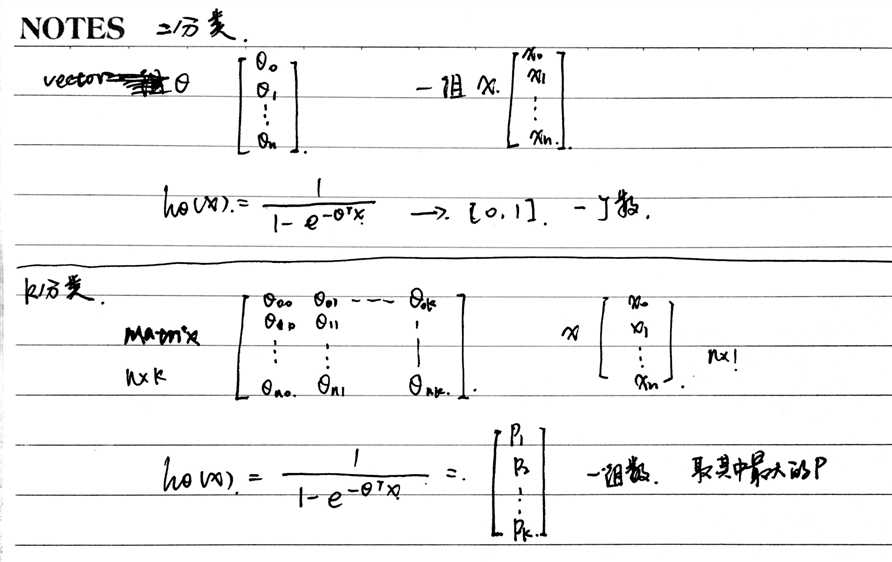 NOTES 二分类.
vector θ [θ₀ θ₁ ⋮ θₙ]. 一组 x. [x₀ x₁ ⋮ xₙ].
hθ(x). = 1 / (1 - e^{-θᵀx}) → [0,1]. 一个数.
k分类.
Matrix n×k [θ₀₀ θ₀₁ --- θ₀ₖ θ₁₀ θ₁₁ ⋮ θₙ₀. θₙ₁ θₙₖ.]. x [x₀ x₁ ⋮ xₙ]. n×1
hθ(x). = 1 / (1 - e^{-θᵀx}) = [P₁ P₂ ⋮ Pₖ.] 一组数. 取其中最大的P